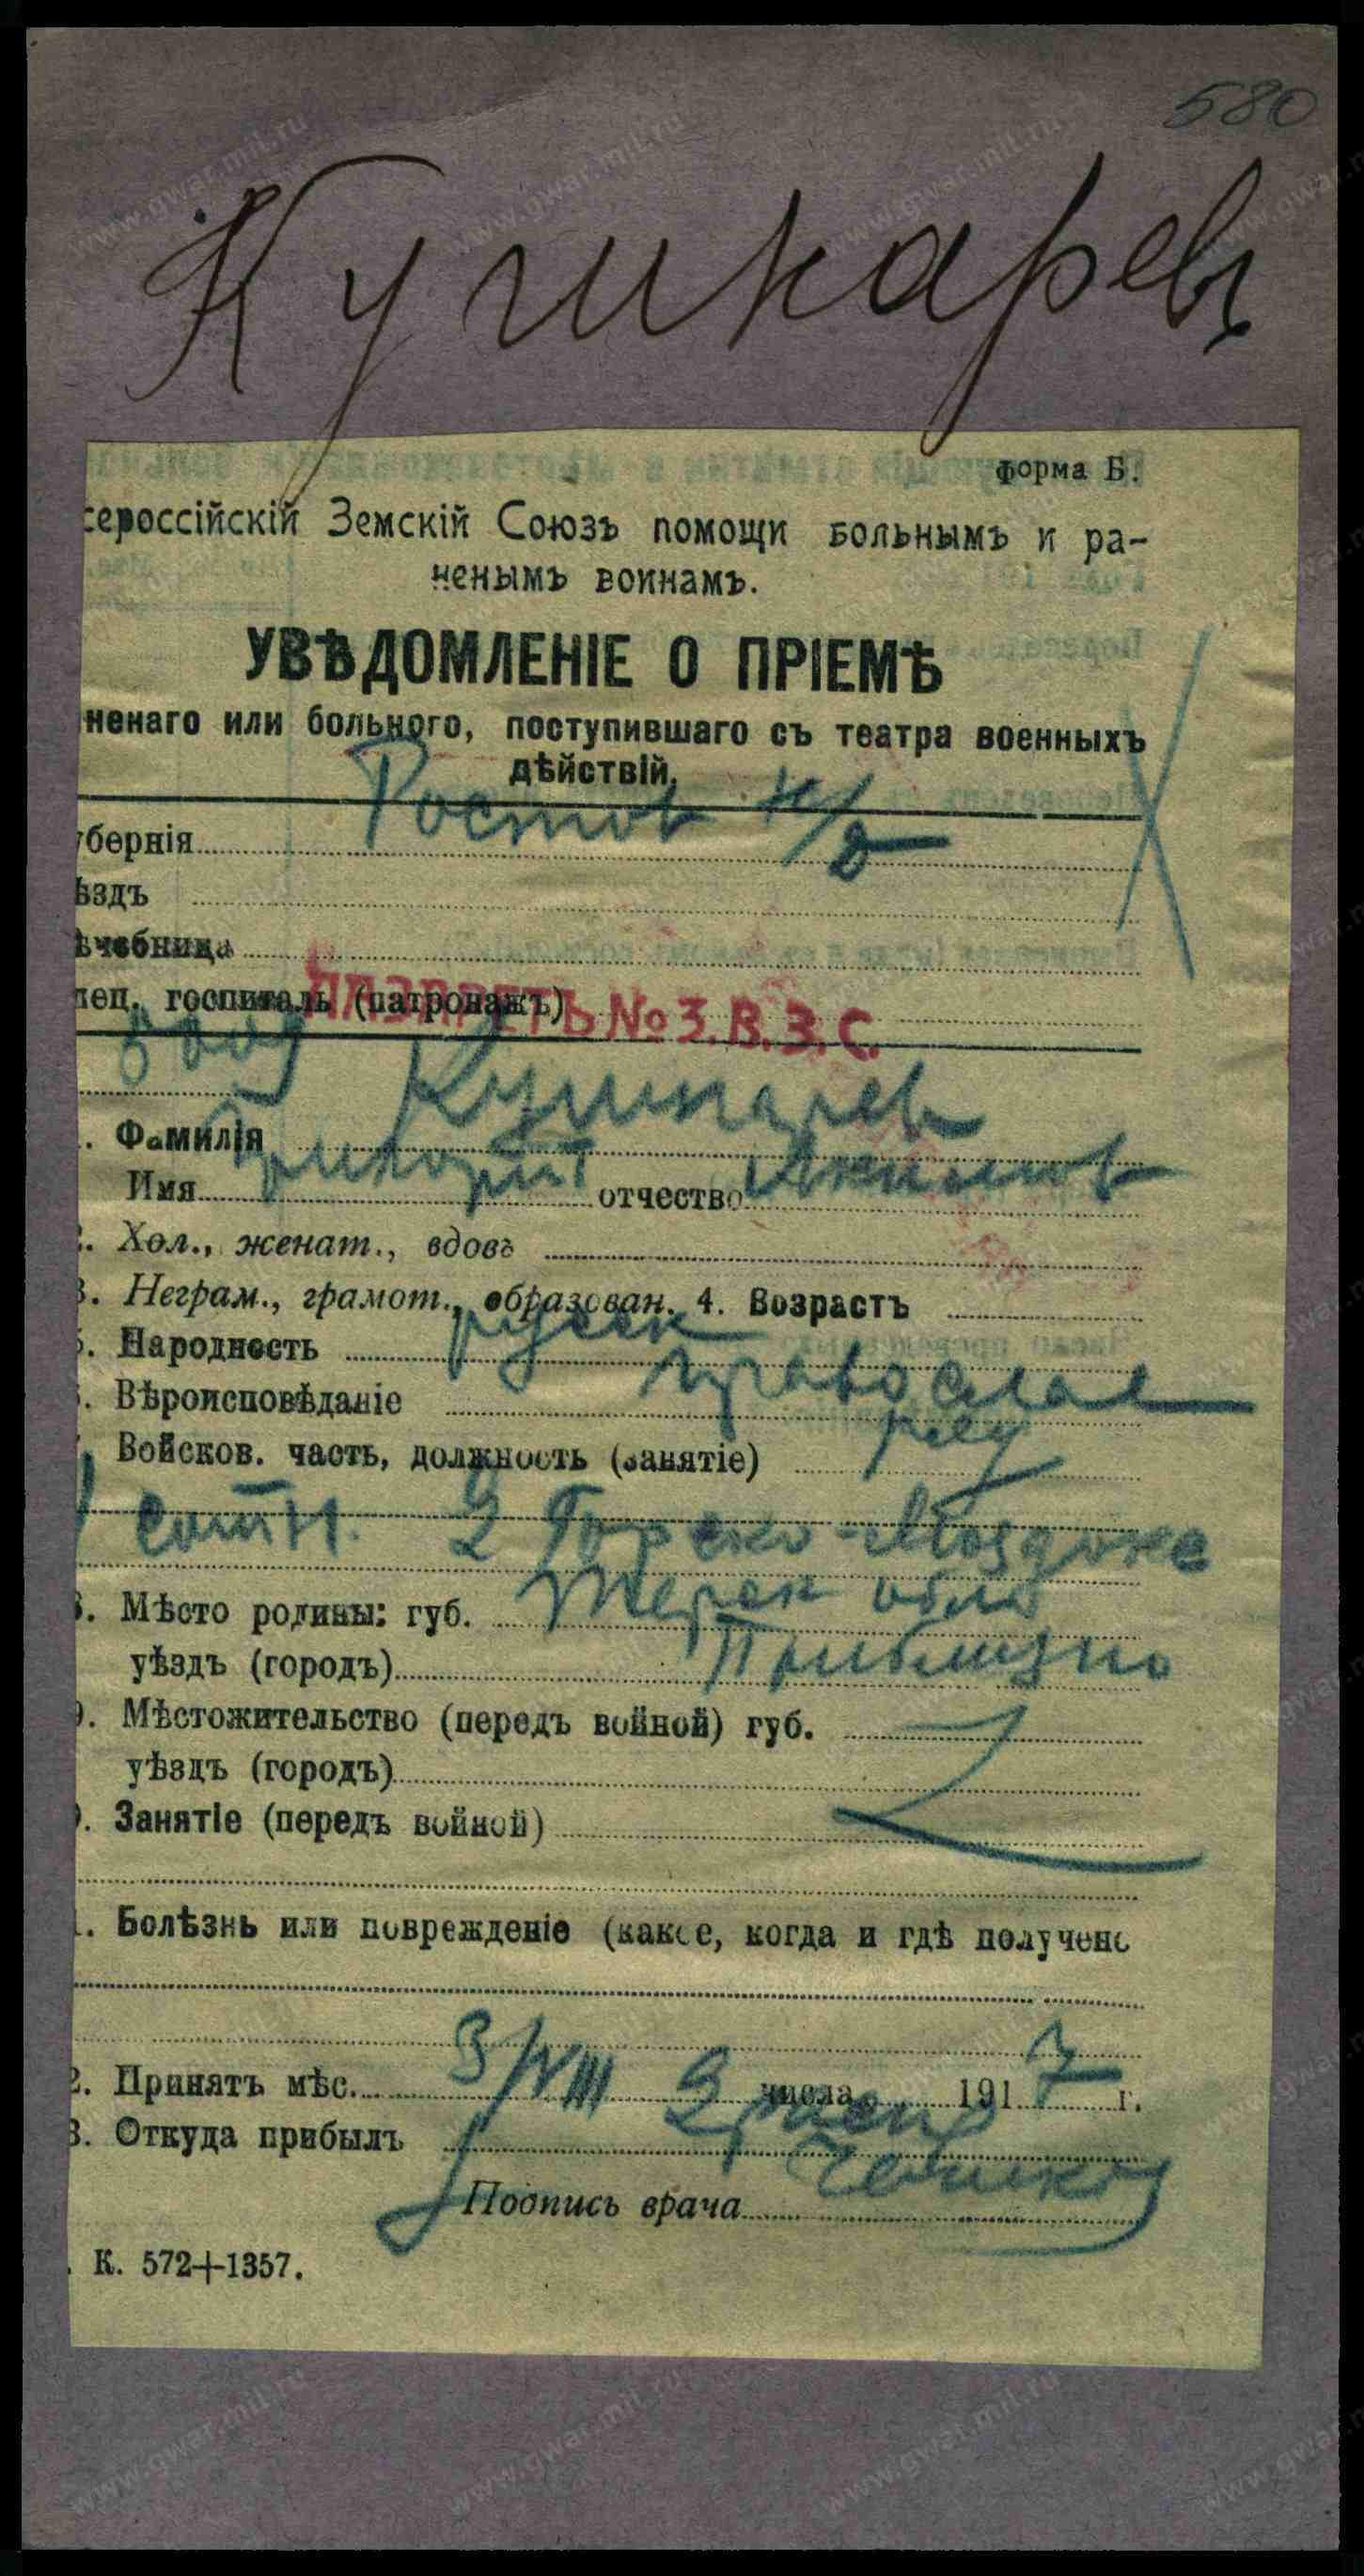 580
Кушкаревъ
форма Б.
сероссійскій Земскій Союзъ помощи больнымъ и ра-
ненымъ воинамъ.
УВѢДОМЛЕНІЕ О ПРІЕМѢ
ненаго или больного, поступившаго съ театра военныхъ
дѣйствій.
Ростов н/Д
убернія
ѣздъ
ѣчебница
пец. госпиталь (патронажъ)
ЛАЗАРЕТЪ No 3. В. З. С.
. Фамилія Кушкарев
Имя Григорій отчество Акимов
. Хол., женат., вдовъ
3. Неграм., грамот., образован. 4. Возрастъ
5. Народность русск
. Вѣроисповѣданіе православ
Войсков. часть, должность (занятіе) ряд
сотн. 2 Горско-Моздокс
. Мѣсто родины: губ. Терск обл
уѣздъ (городъ) Приближно
). Мѣстожительство (передъ войной) губ.
уѣздъ (городъ)
). Занятіе (передъ войной)
. Болѣзнь или поврежденіе (какое, когда и гдѣ получено
2. Принятъ мѣс. 3/VIII числа 1917 г.
3. Откуда прибылъ
Подпись врача
К. 572+1357.